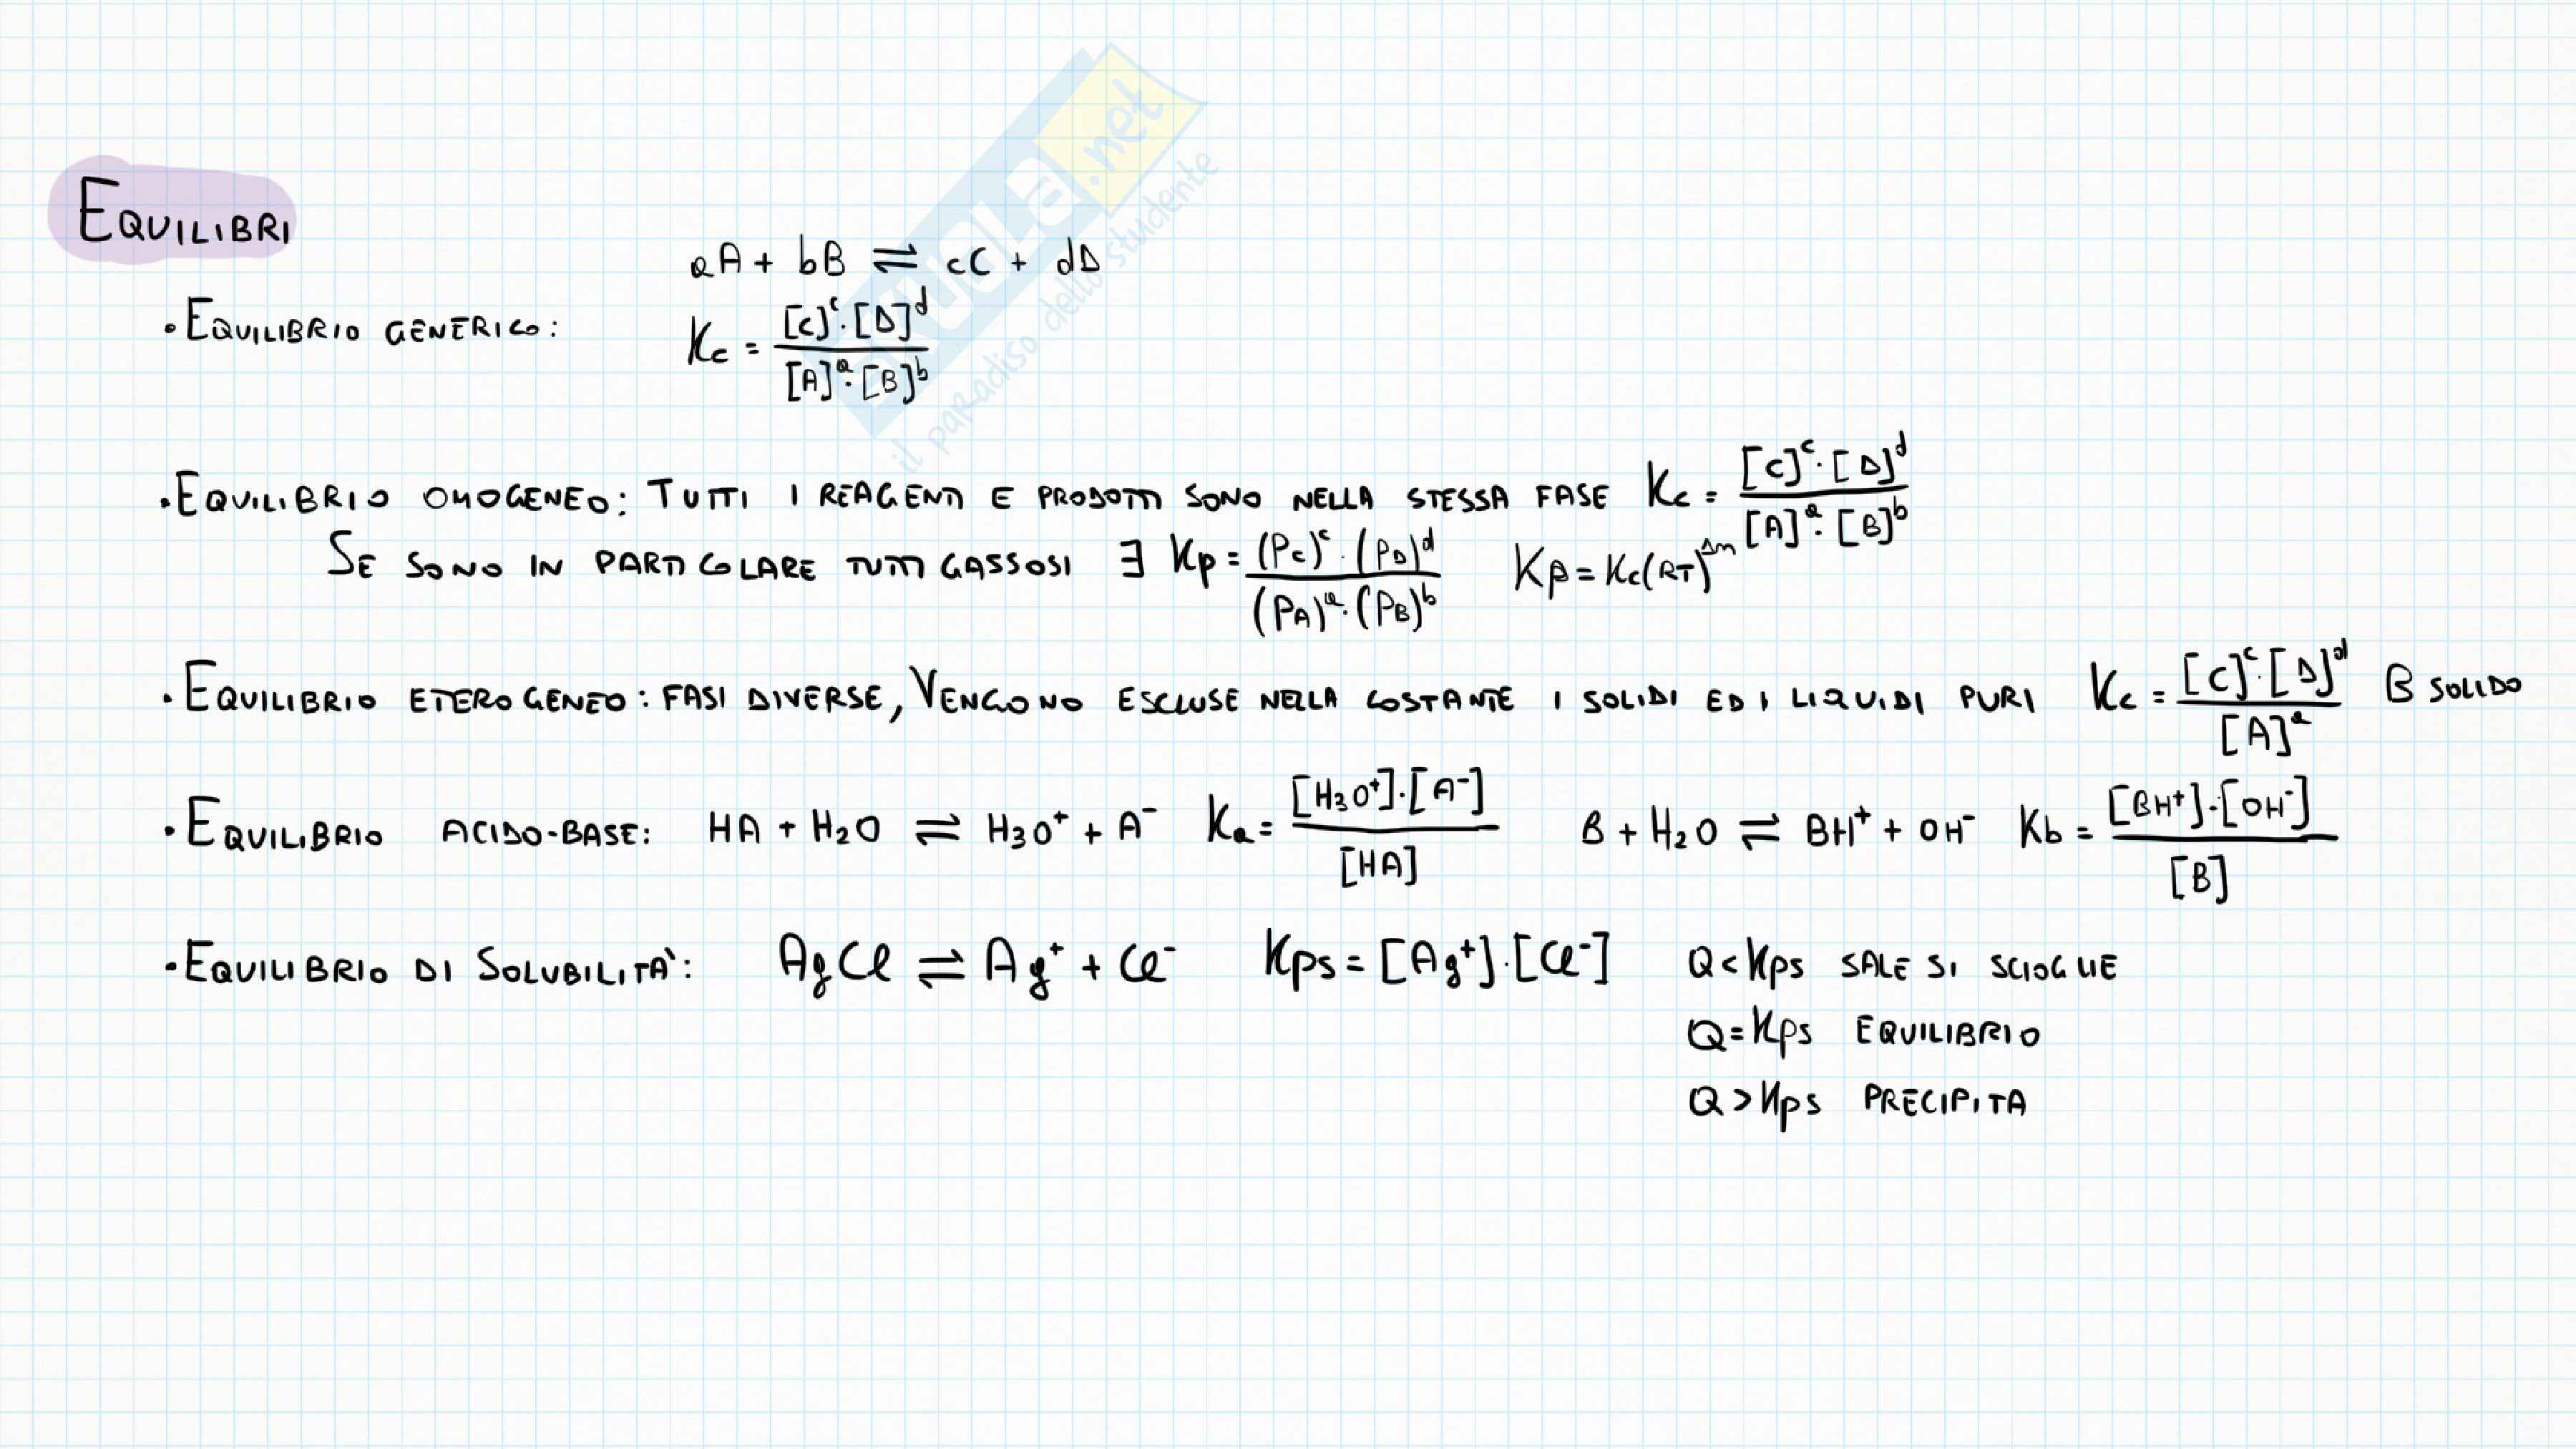 EQUILIBRI
aA + bB ⇌ cC + dD
• EQUILIBRIO GENERICO: Kc = [C]^c · [D]^d / [A]^a · [B]^b
• EQUILIBRIO OMOGENEO: TUTTI I REAGENTI E PRODOTTI SONO NELLA STESSA FASE Kc = [C]^c · [D]^d / [A]^a · [B]^b
SE SONO IN PARTICOLARE TUTTI GASSOSI ∃ Kp = (PC)^c · (PD)^d / (PA)^a · (PB)^b Kp = Kc(RT)^Δn
• EQUILIBRIO ETEROGENEO: FASI DIVERSE, VENGONO ESCLUSE NELLA COSTANTE I SOLIDI ED I LIQUIDI PURI Kc = [C]^c · [D]^d / [A]^a B SOLIDO
• EQUILIBRIO ACIDO-BASE: HA + H2O ⇌ H3O⁺ + A⁻ Ka = [H3O⁺] · [A⁻] / [HA] B + H2O ⇌ BH⁺ + OH⁻ Kb = [BH⁺] · [OH⁻] / [B]
• EQUILIBRIO DI SOLUBILITÀ: AgCl ⇌ Ag⁺ + Cl⁻ Kps = [Ag⁺] · [Cl⁻] Q < Kps SALE SI SCIOGLIE
Q = Kps EQUILIBRIO
Q > Kps PRECIPITA
skuola.net
il paradiso dello studente